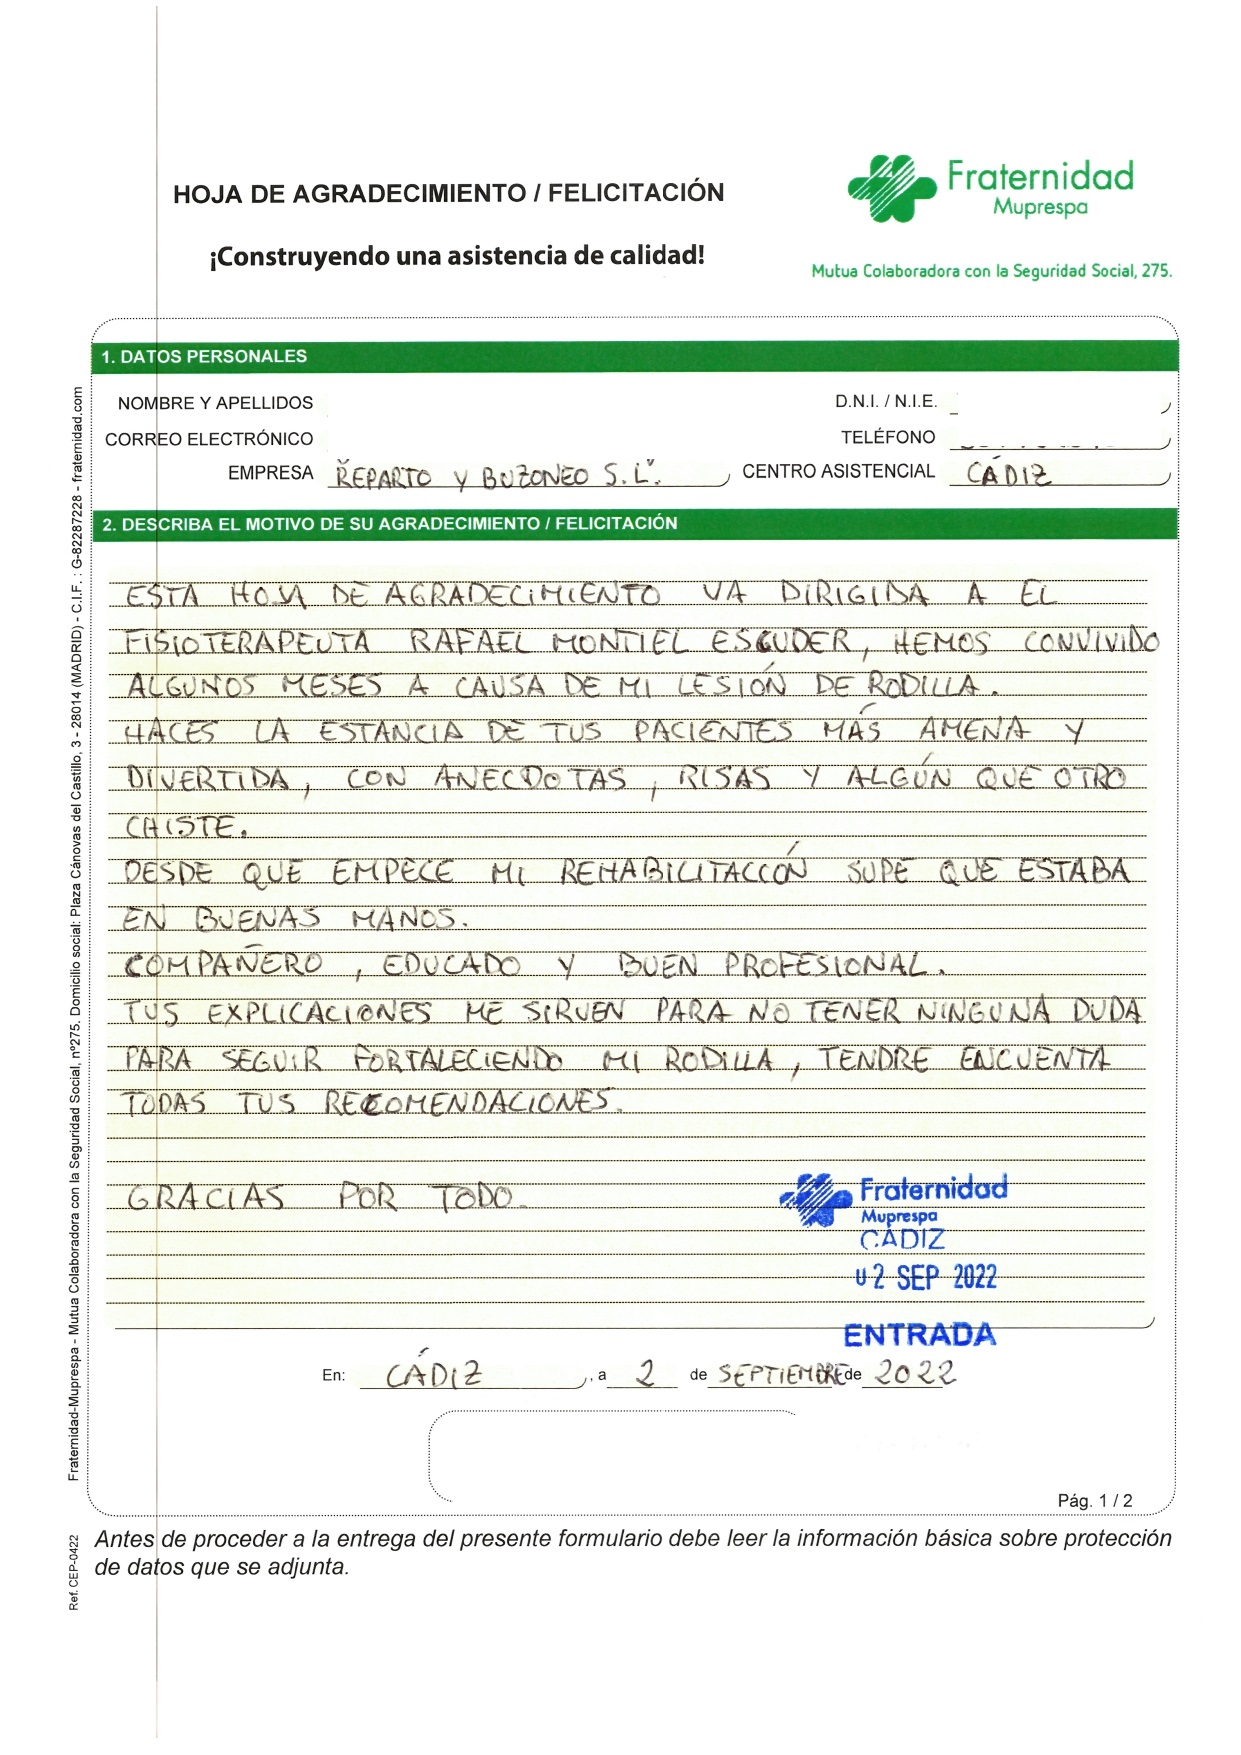 HOJA DE AGRADECIMIENTO / FELICITACIÓN
¡Construyendo una asistencia de calidad!
Fraternidad
Muprespa
Mutua Colaboradora con la Seguridad Social, 275.
1. DATOS PERSONALES
NOMBRE Y APELLIDOS
D.N.I. / N.I.E.
CORREO ELECTRÓNICO
TELÉFONO
EMPRESA REPARTO Y BUZONEO S.L. CENTRO ASISTENCIAL CÁDIZ
2. DESCRIBA EL MOTIVO DE SU AGRADECIMIENTO / FELICITACIÓN
ESTA HOJA DE AGRADECIMIENTO VA DIRIGIDA A EL
FISIOTERAPEUTA RAFAEL MONTIEL ESCUDER, HEMOS CONVIVIDO
ALGUNOS MESES A CAUSA DE MI LESIÓN DE RODILLA.
HACES LA ESTANCIA DE TUS PACIENTES MÁS AMENA Y
DIVERTIDA, CON ANECDOTAS, RISAS Y ALGÚN QUE OTRO
CHISTE.
DESDE QUE EMPECE MI REHABILITACCÓN SUPE QUE ESTABA
EN BUENAS MANOS.
COMPAÑERO, EDUCADO Y BUEN PROFESIONAL.
TUS EXPLICACIONES ME SIRVEN PARA NO TENER NINGUNA DUDA
PARA SEGUIR FORTALECIENDO MI RODILLA, TENDRE ENCUENTA
TODAS TUS RECOMENDACIONES.
GRACIAS POR TODO.
Fraternidad
Muprespa
CÁDIZ
02 SEP 2022
ENTRADA
En: CÁDIZ, a 2 de SEPTIEMBRE de 2022
Pág. 1 / 2
Antes de proceder a la entrega del presente formulario debe leer la información básica sobre protección
de datos que se adjunta.
Fraternidad-Muprespa - Mutua Colaboradora con la Seguridad Social, nº275. Domicilio social: Plaza Cánovas del Castillo, 3 - 28014 (MADRID) - C.I.F. : G-82287228 - fraternidad.com
Ref. CEP-0422